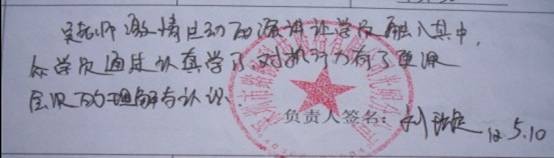 吴老师激情生动的演讲让学员融入其中,
众学员通过认真学习,对执行力有了更深
层次的理解与认识.
负责人签名: 12.5.10